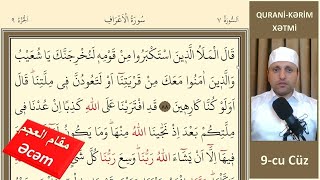 السورة ٧ سُورَةُ الْأَعْرَافِ الجزء ٩
قَالَ الْمَلَأُ الَّذِينَ اسْتَكْبَرُوا مِنْ قَوْمِهِ لَنُخْرِجَنَّكَ يَا شُعَيْبُ
وَالَّذِينَ اٰمَنُوا مَعَكَ مِنْ قَرْيَتِنَا اَوْ لَتَعُودُنَّ فِي مِلَّتِنَا قَالَ
اَوَلَوْ كُنَّا كَارِهِينَ ٨٨ قَدِ افْتَرَيْنَا عَلَى اللّٰهِ كَذِبًا اِنْ عُدْنَا فِي
مِلَّتِكُمْ بَعْدَ اِذْ نَجّٰينَا اللّٰهُ مِنْهَا وَمَا يَكُونُ
فِيهَا اِلَّٓا اَنْ يَشَٓاءَ اللّٰهُ رَبُّنَا وَسِعَ رَبُّنَا كُلَّ شَيْءٍ
مقام العجم
Əcəm
QURANİ-KƏRİM
XƏTMİ
9-cu Cüz